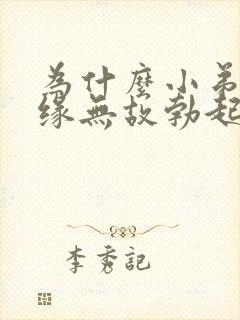 為什麼小弟
緣無故勃起
李秀記